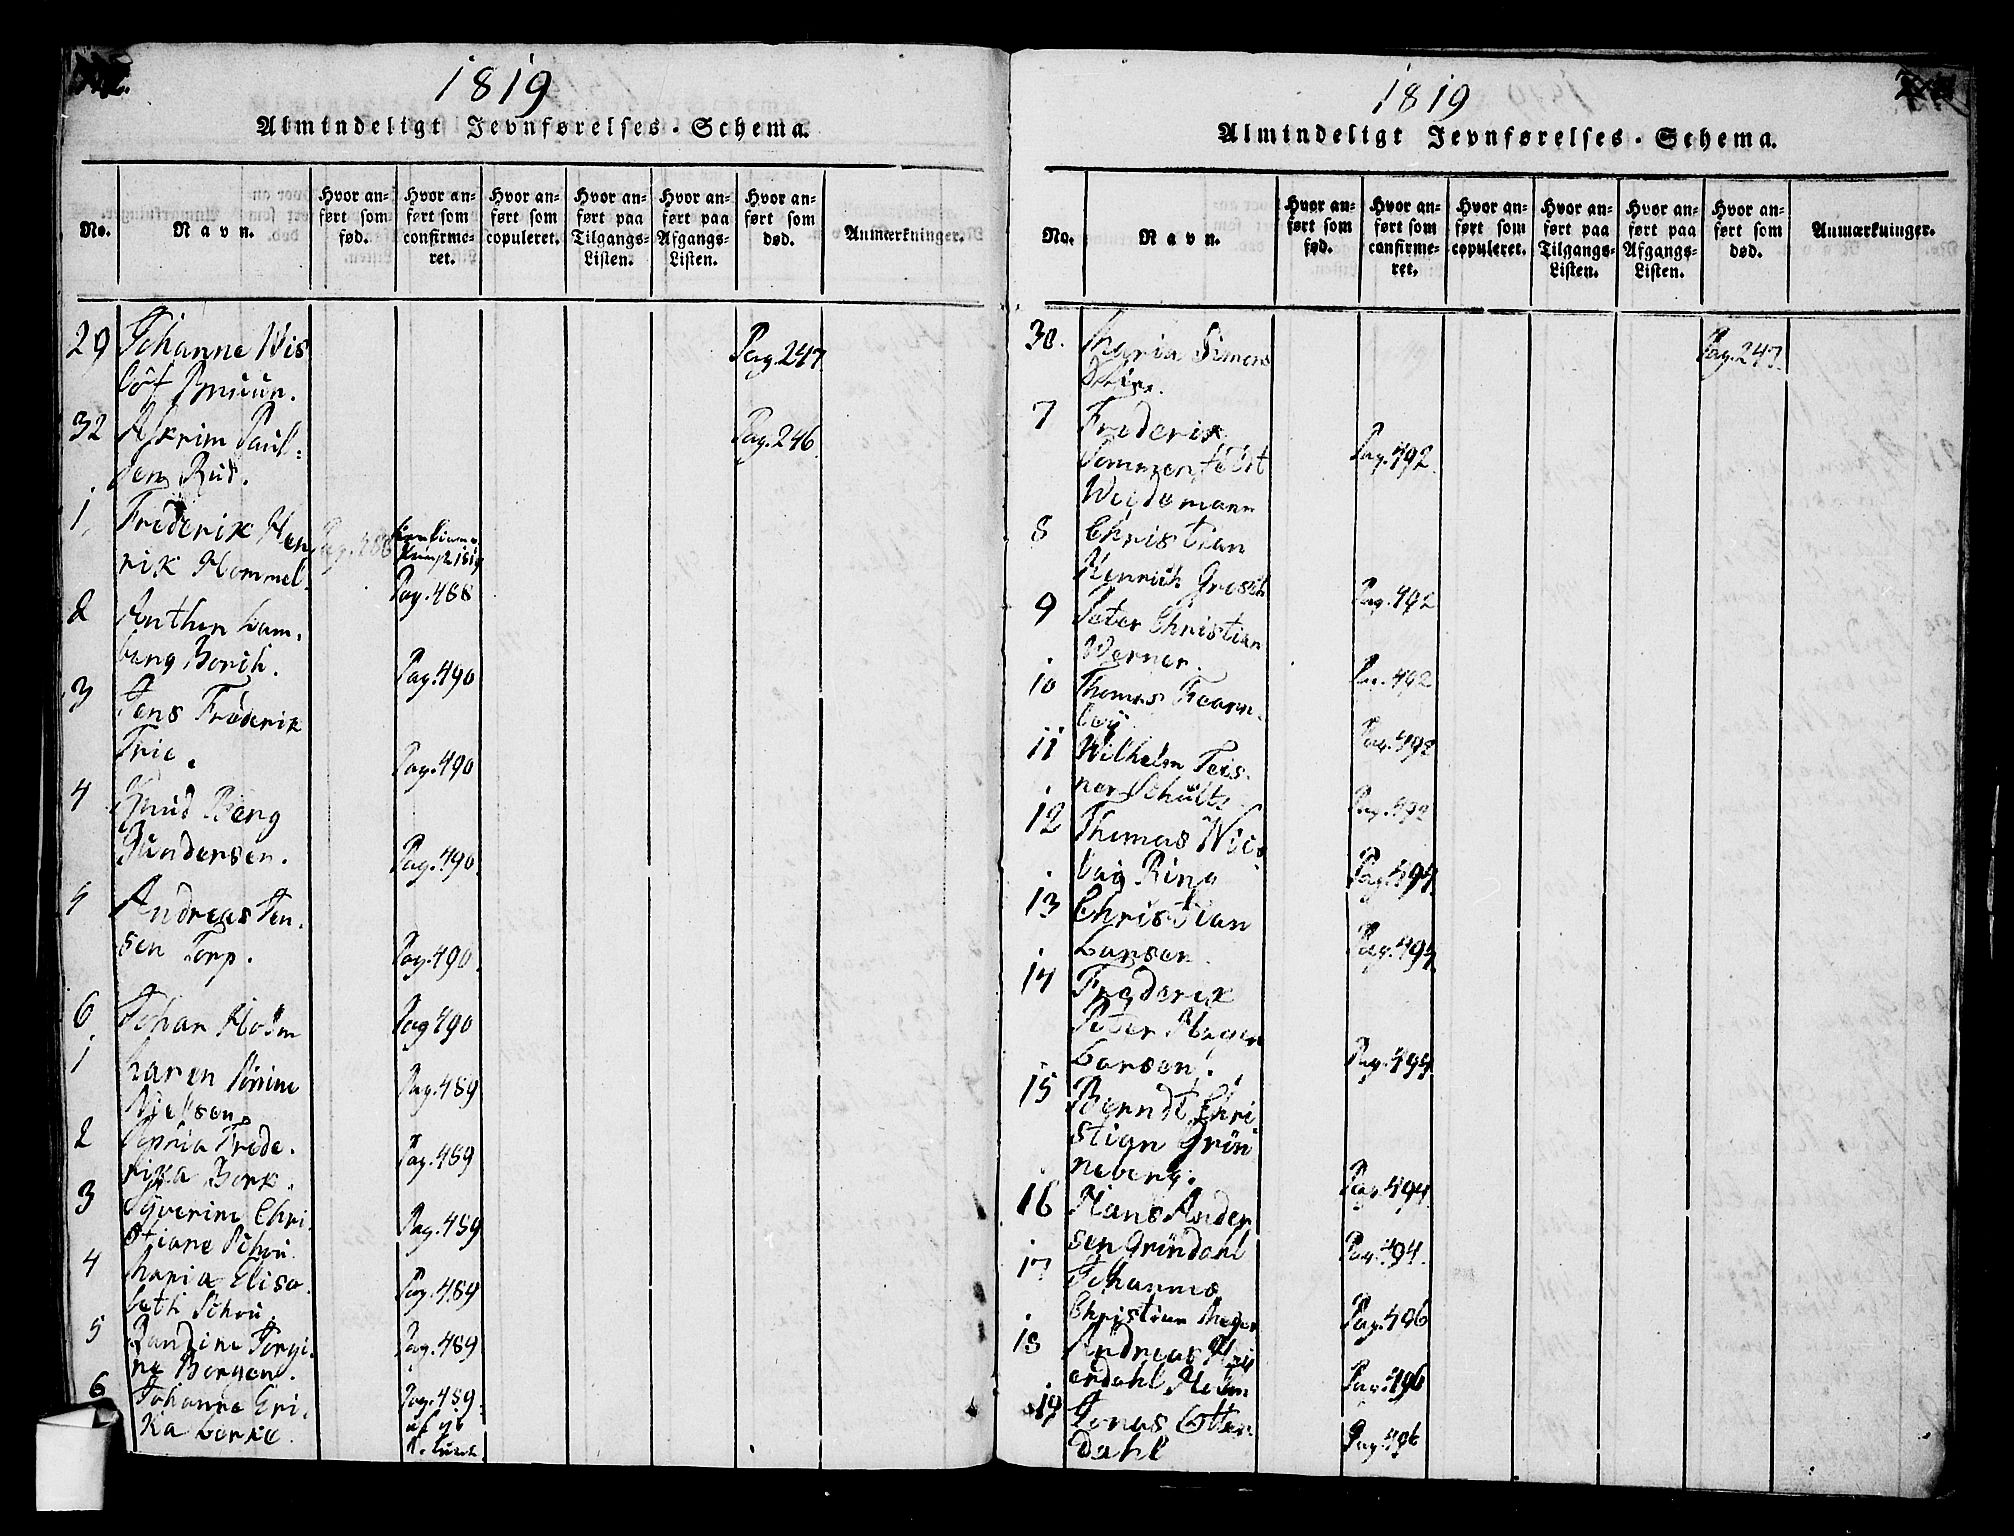 1819
Almindeligt Jevnførelses-Schema.
No.
Navn.
Hvor anført som fød.
Hvor anført som confirmeret.
Hvor anført som copuleret.
Hvor anført paa Tilgangs-Listen.
Hvor anført paa Afgangs-Listen.
Hvor anført som død.
Anmærkninger.
29 Johanne Pag. 247
Bruun.
32 Paul- Pag. 246.
sen Rud.
1, Frederik Hen
rik Hommel Pag. 488
2 Anthon Lam-
berg Borch. Pag. 490
3 Jens Frederik
Trie. Pag. 490
4 Knud Berg
Gundersen. Pag. 490.
5 Andreas Jen-
sen Torp. Pag. 490.
6 Johan Holm Pag 490
1 Karen Sørine Pag. 489
Nielsen
2 Sophia Frede- Pag. 489
rika Bork.
3 Syverine Chri- Pag. 489
stiane Schou
4 Maria Elisa- Pag. 489
beth Schou
5 Randine Torgi- Pag. 489
ne Borgen.
6 Johanne Eri- Pag. 489.
ka Lerke.
1819
Almindeligt Jevnførelses-Schema.
No.
Navn.
Hvor anført som fød.
Hvor anført som confirmeret.
Hvor anført som copuleret.
Hvor anført paa Tilgangs-Listen.
Hvor anført paa Afgangs-Listen.
Hvor anført som død.
Anmærkninger.
30. Maria Simens Pag. 247.
7 Frederik Pag. 492.
Sommerfeldt
Weidemann
8 Christian
Henrich Grosch Pag. 492
9 Peter Christian
Werner. Pag. 492
10 Thomas Fearn-
ley Pag. 492
11 Wilhelm Teis-
ner Schultz Pag. 492
12 Thomas Nico
lai Ring Pag. 494.
13 Christian
Larsen. Pag. 494.
14 Frederik
Peter Meyer
Larsen. Pag. 494
15 Berndt Chri-
stian Grön
neberg. Pag. 494.
16 Hans Ander
sen Gröndahl Pag. 494.
17 Johannes
Christian Meyer Pag. 496
18 Andreas
erdahl Holm Pag. 496
19 Jonas Otter
dahl Pag. 496